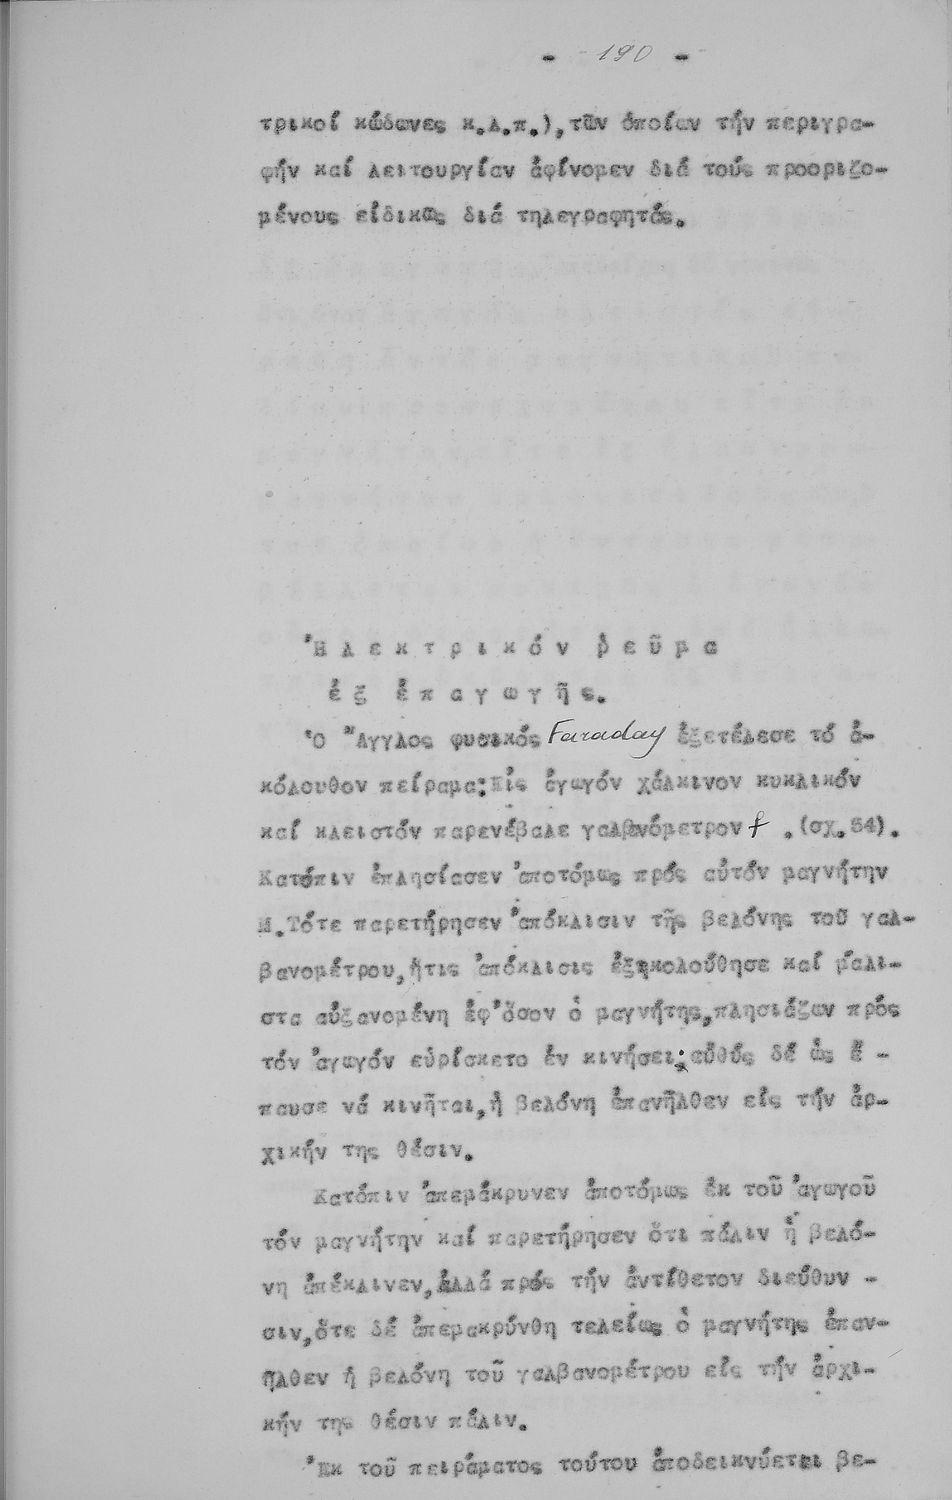 - 190 -
τρικοί κώδωνες κ.λ.π.), τῶν ὁποίων τήν περιγρα-
φήν καί λειτουργίαν ἀφίνομεν διά τούς προοριζο-
μένους εἰδικῶς διά τηλεγραφητάς.
Ἠλεκτρικόν ῥεῦμα
ἐξ ἐπαγωγῆς.
Ὁ Ἄγγλος φυσικός Faraday ἐξετέλεσε τό ἀ-
κόλουθον πείραμα: Εἰς ἀγωγόν χάλκινον κυκλικόν
καί κλειστόν παρενέβαλε γαλβανόμετρον f .(σχ.54).
Κατόπιν ἐπλησίασεν ἀποτόμως πρός αὐτόν μαγνήτην
Μ.Τότε παρετήρησεν ἀπόκλισιν τῆς βελόνης τοῦ γαλ-
βανομέτρου, ἥτις ἀπόκλισις ἐξηκολούθησε καί μάλι-
στα αὐξανομένη ἐφ'ὅσον ὁ μαγνήτης, πλησιάζων πρός
τόν ἀγωγόν εὑρίσκετο ἐν κινήσει; αὐθύς δέ ὡς ἔ -
παυσε νά κινῆται, ἡ βελόνη ἐπανῆλθεν εἰς τήν ἀρ-
χικήν της θέσιν.
Κατόπιν ἀπεμάκρυνεν ἀποτόμως ἐκ τοῦ ἀγωγοῦ
τόν μαγνήτην καί παρετήρησεν ὅτι πάλιν ἡ βελό-
νη ἀπέκλινεν, ἀλλά πρός τήν ἀντίθετον διεύθυν -
σιν, ὅτε δέ ἀπεμακρύνθη τελείως ὁ μαγνήτης ἐπαν-
ῆλθεν ἡ βελόνη τοῦ γαλβανομέτρου εἰς τήν ἀρχι-
κήν της θέσιν πάλιν.
Ἐκ τοῦ πειράματος τούτου ἀποδεικνύεται βε-